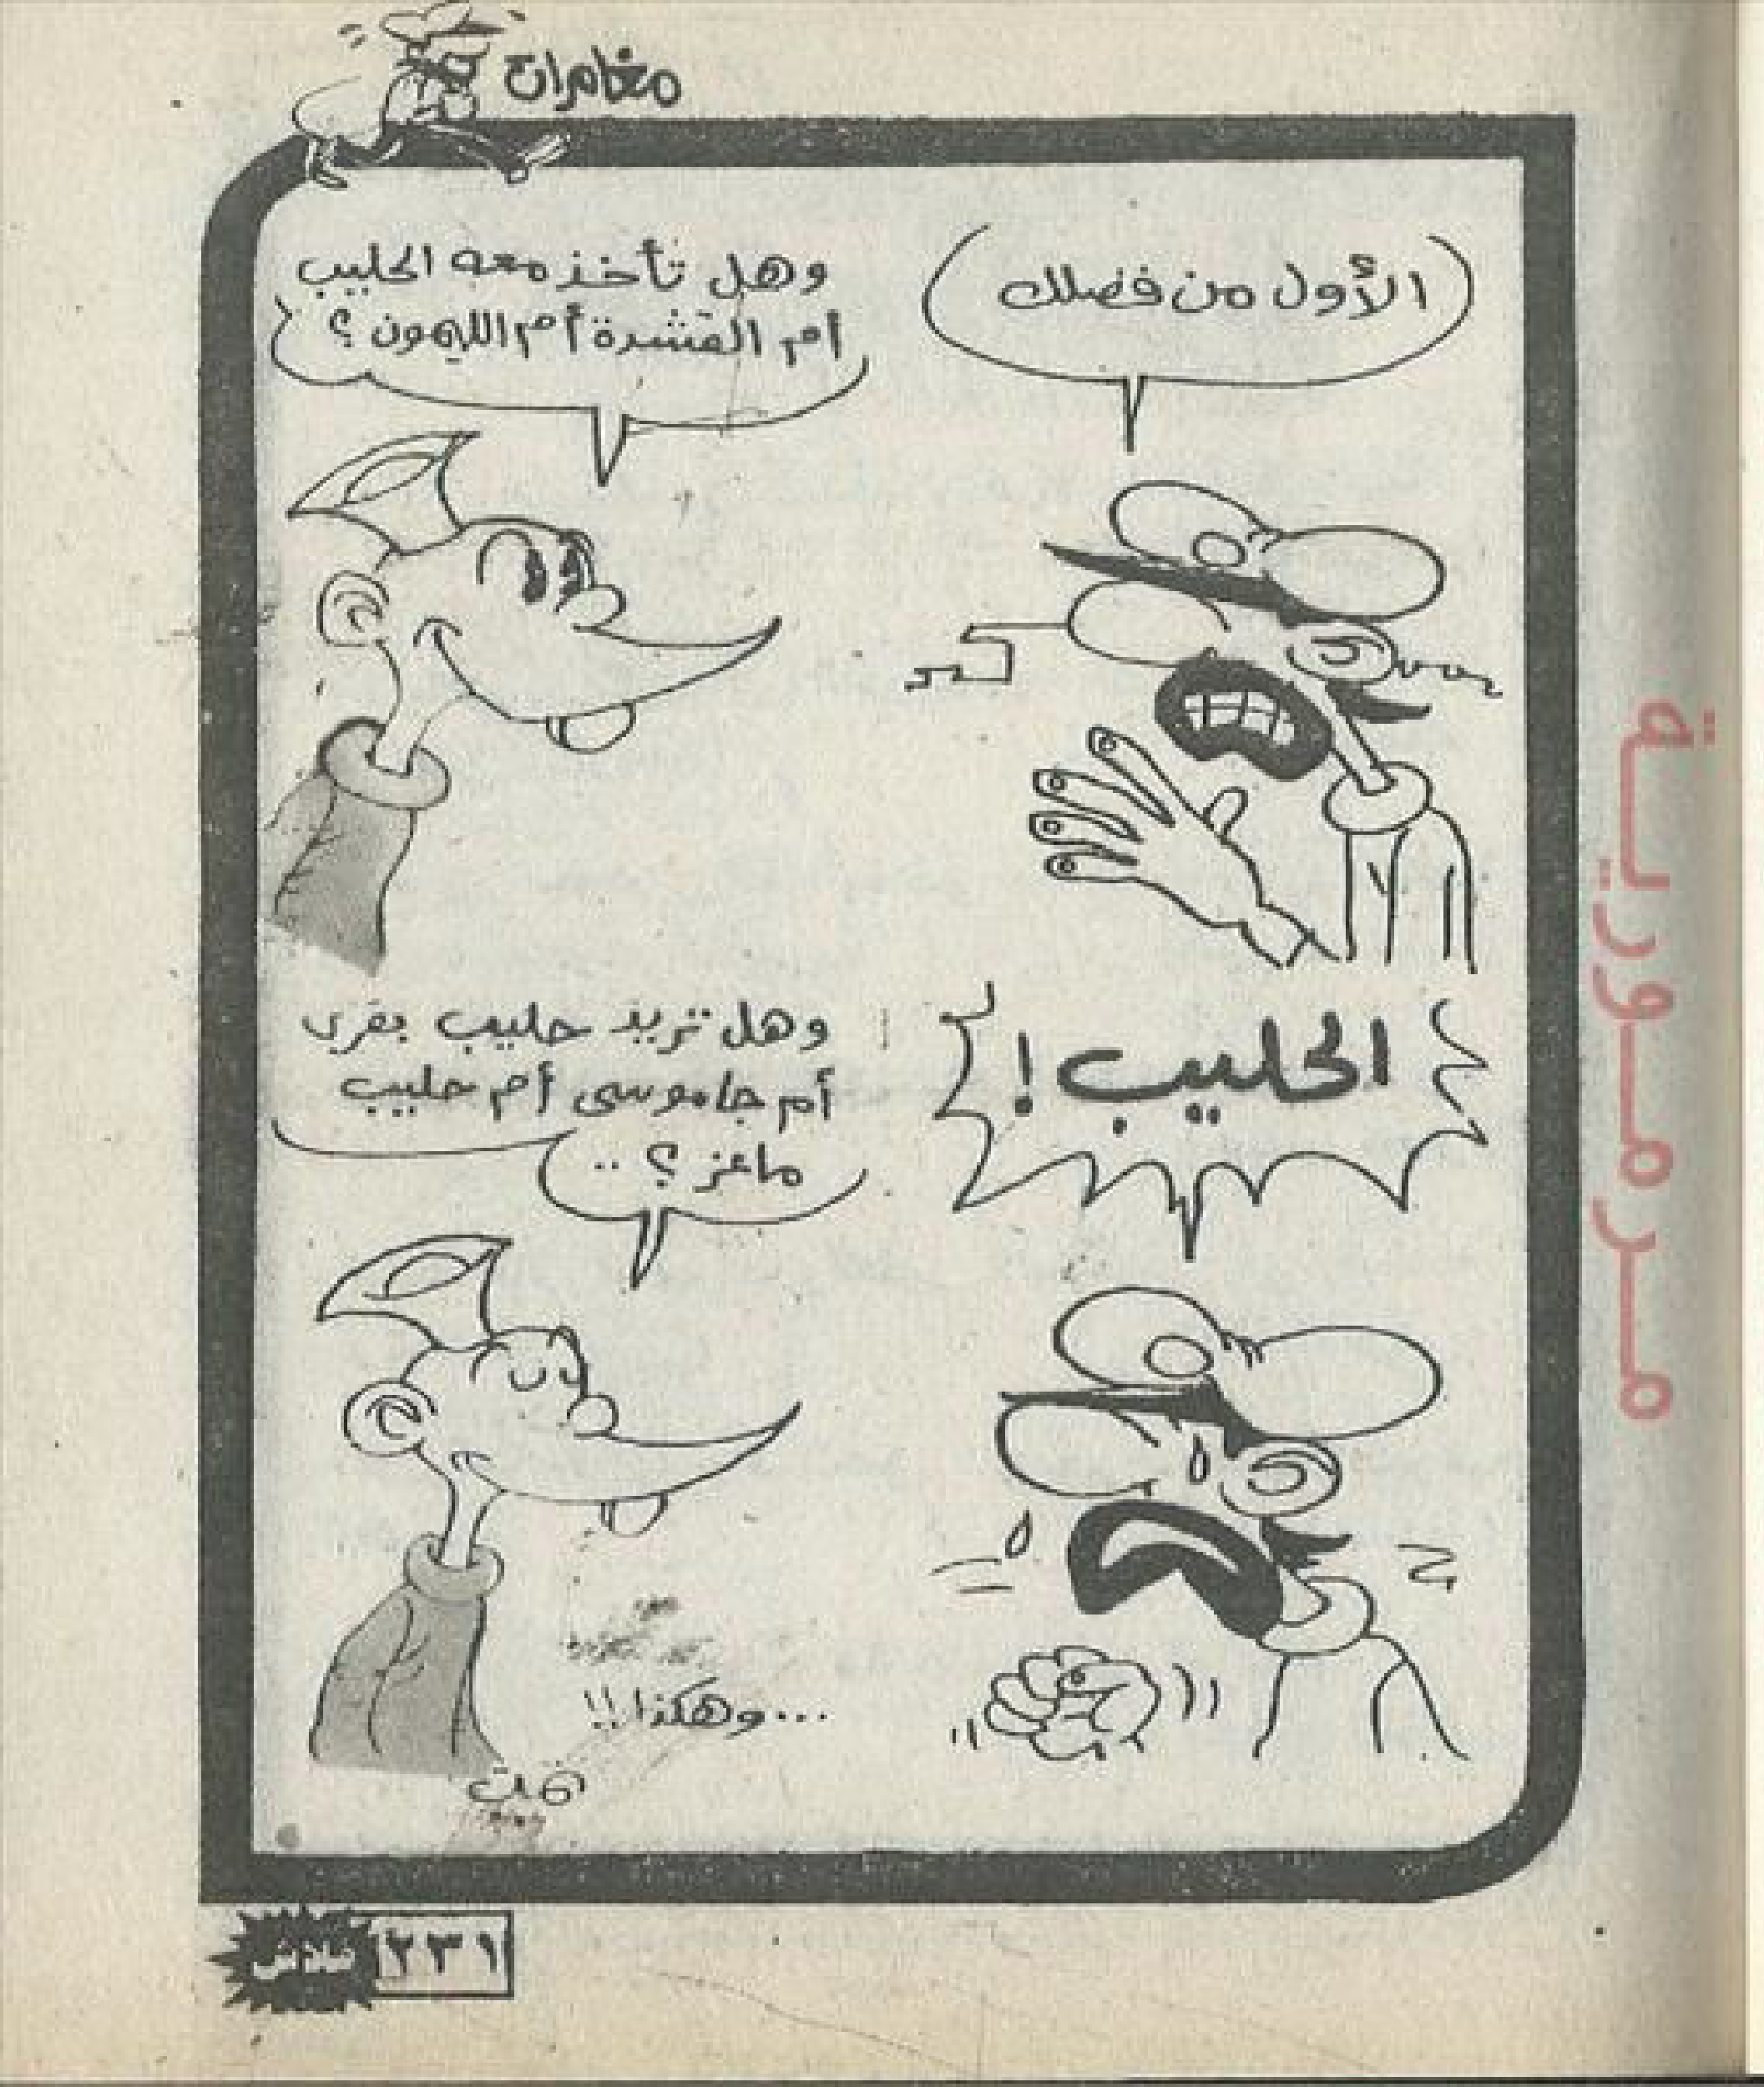 مغامرات
الأول من فضلك
وهل تأخذ معه الحليب
أم القشدة أم الليمون ؟
الحليب !
وهل تريد حليب بقرى
أم جاموسى أم حليب
ماعز ؟ ..
... وهكذا !!
تمت
٢٣١
فلاش
مرمورية